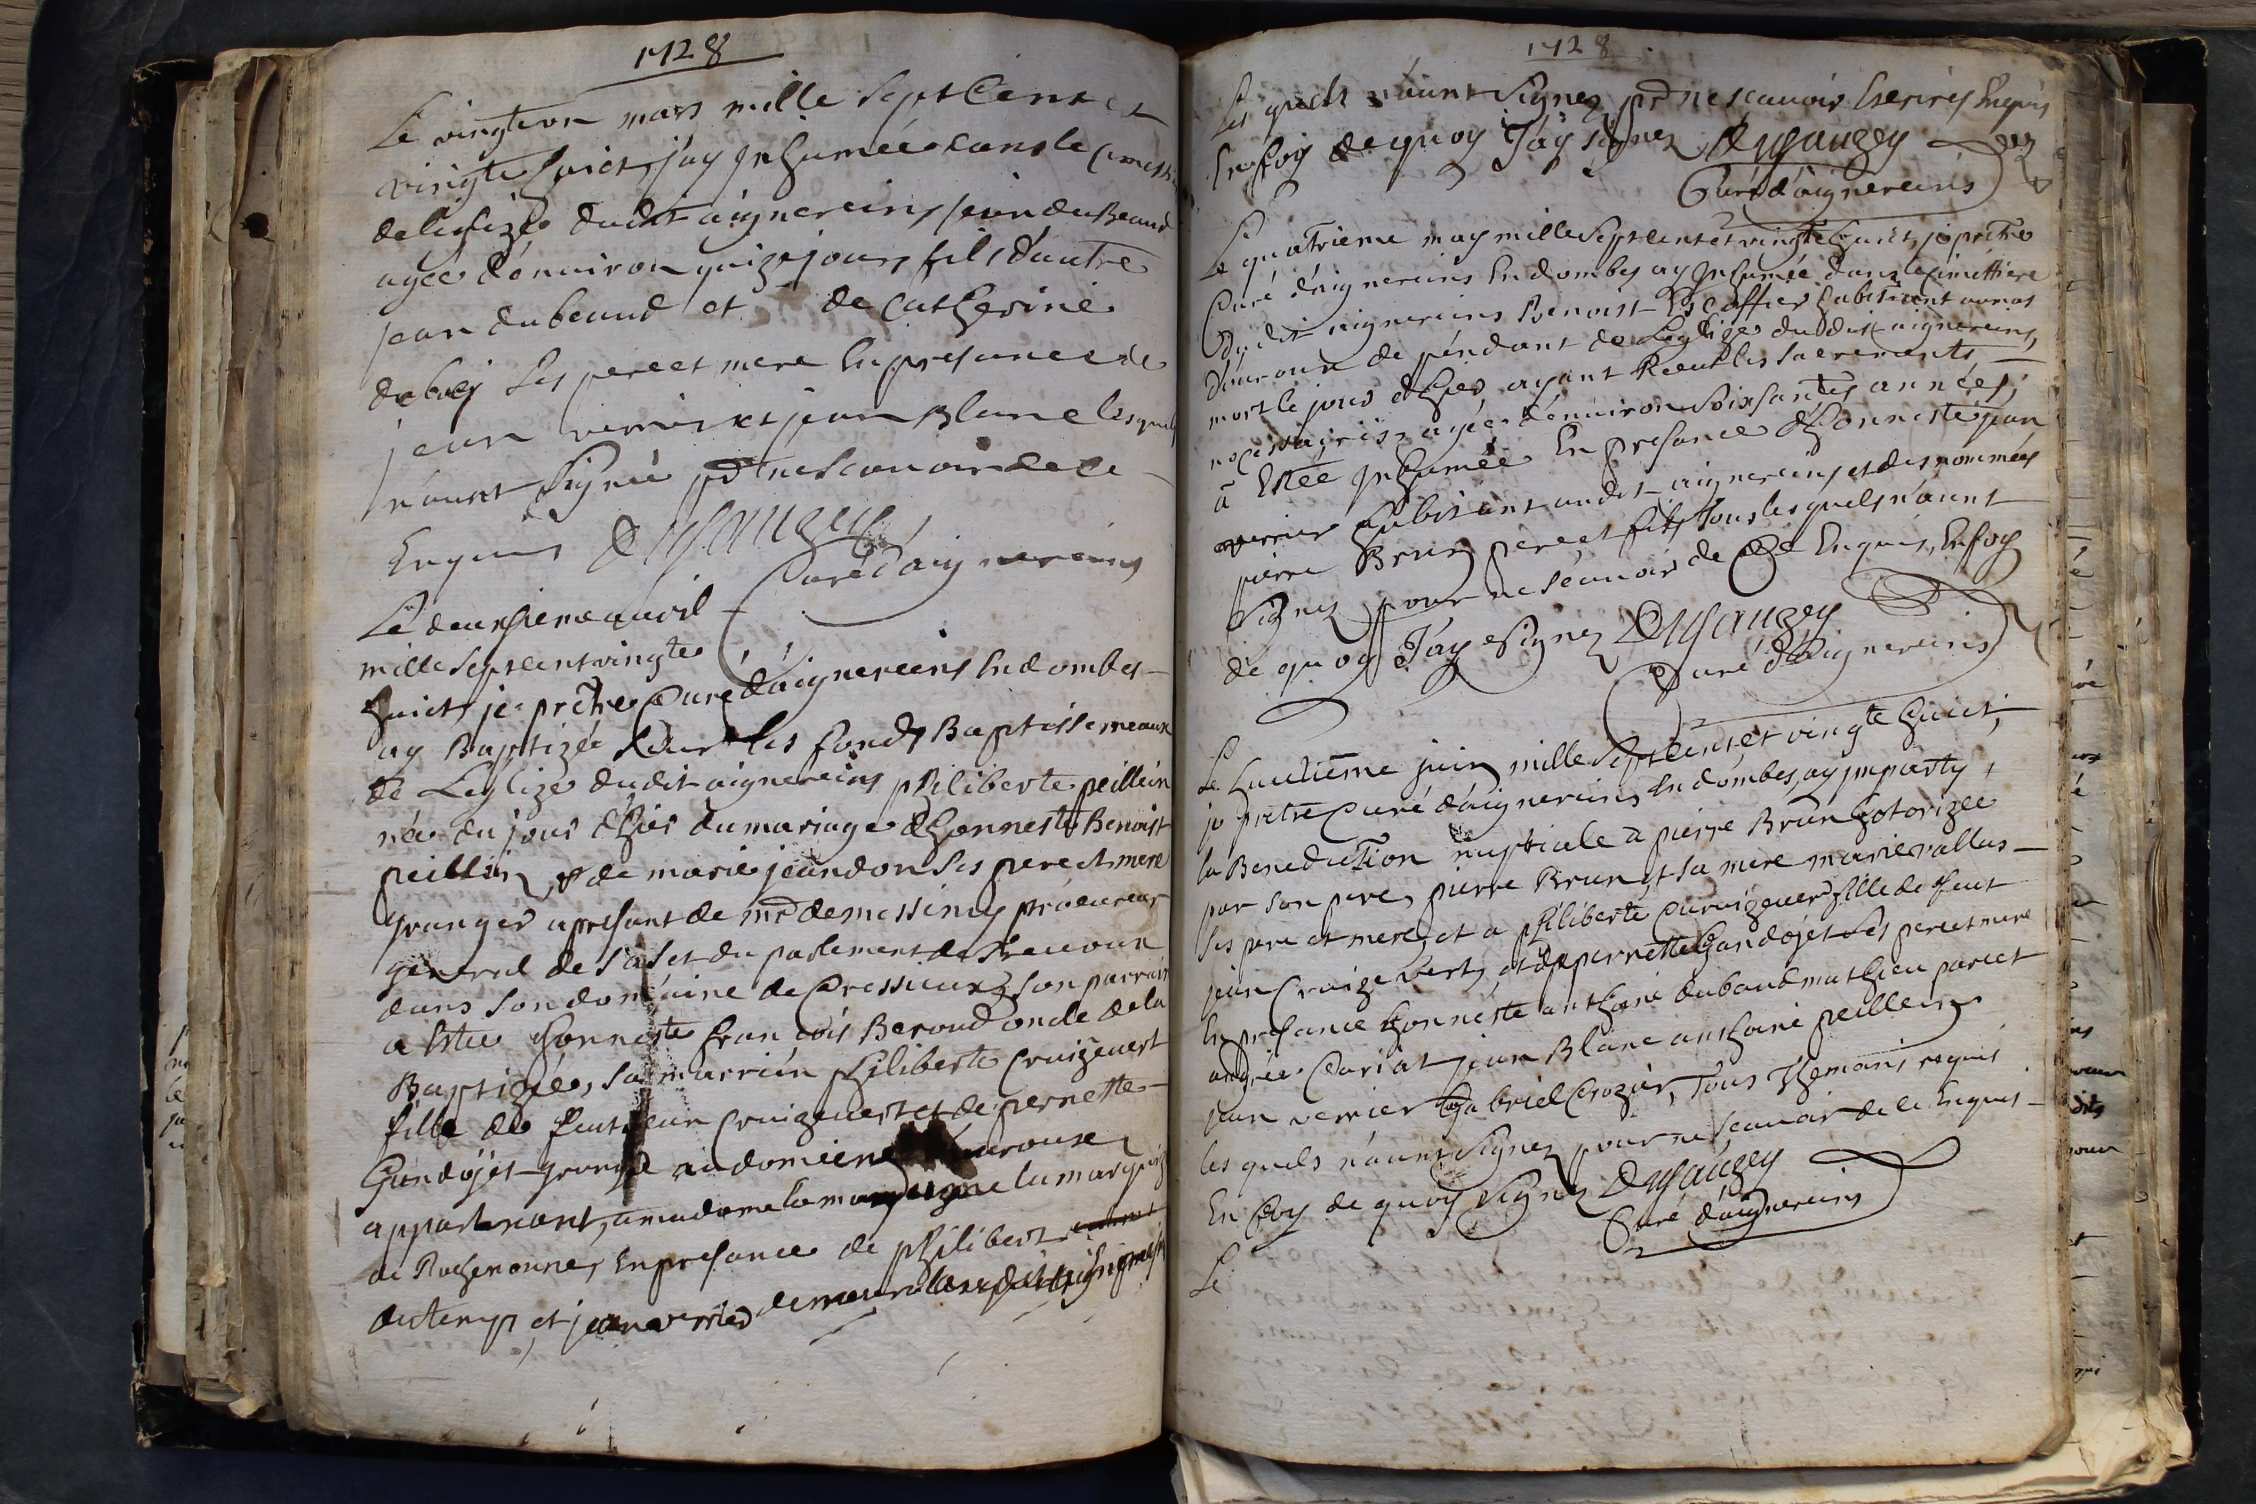 1728
Le vingte un mars mille Sept Cent et
vingte huict, j'ay Inhumée dans le Cimetti
de leglize dudit aignereins jean du Beaud
agée d'énuiron quize jours fils d'autre
jean dubeaud et de Catherine
ses pere et mere En presance de
jean verrier et jean Blanc lesquels
n'aunt Signéé pr ne scauoir de ce
Enquis Dusauzey
Curé d'aignereins
Le deuxsieme auril
mille Septcent vingte
huict, je prêtre Curé d'aignereins En dombes
ay Baptizée sur les fonds Baptissemeaux
de Leglize dudit aignereins philiberte peillein
née du jour d'hier du mariage d'honneste Benoist
peillein & de marie jeandon ses pere et mere
granger apresant de mr de messimy procureur
general de S. A. S. et du parlement de Treuoux
dans son domaine de Cressieux, son parrain
a Estee honneste francois Beroud oncle de la
Baptizée, sa marrién philiberte Cruizeuert
fille de feut jean Cruizeuert et de pernette
Gandojet grange au domiene d'ouroux
appartenant, a madame la marquize
de Rochenonne, En presance de philibert
dutemp, et jean verrier demeurants audit aignereins
1728
Les quels n'aunt Signez pr ne scauoir Escrires Enquis
En foy de quoy J'ay signez Dusauzey
Curé d'aignereins
Le quatrieme may mille Septcent et vingte huict, je prêtre
Curé d'aignereins En dombes ay Inhumée dans le Cimettiere
dudit aignereins Benoist Escoffier habitant au mas
d'ouroux de péndant de Leglize dudit aignereins,
mort le jour d'hier, ayant Receut les Sacrements
nécéssairis, agée d'énuiron Soixsantes années;
à Estée Inhumée En presance d'honneste jean
verrier habitant audit aignereins et des nommées
pierre Brun pere et fils, tous les quels n'aunt
Signez pour ne scauoir de Ce Enquis, En foy
de quoy J'ay Signez Dusauzey
Curé d'aignereins
Le huictieme juin mille Septcent et vingte huict,
je prêtre Curé d'aignereins En dombes, ay Imparty,
la Benediction nuptiale a pierre Brun hotorizée
par son pere, pierre Brun et sa mere marie vallas
ses pere et mere, et a philiberte Cruizeuert fille de feut
jean Cruizeuert, et de pernette Gandojet ses pere et mere
En presance honneste anthoine dubaud mathieu pariet
andrée Cariat jean Blanc anthoine peillein
jean verrier Gabriel Crozier, Tous Themoins requis
les quels n'aunt Signez pour ne scauoir de ce Enquis
En foy de quoy Signez Dusauzey
Curé d'aignereins
Le